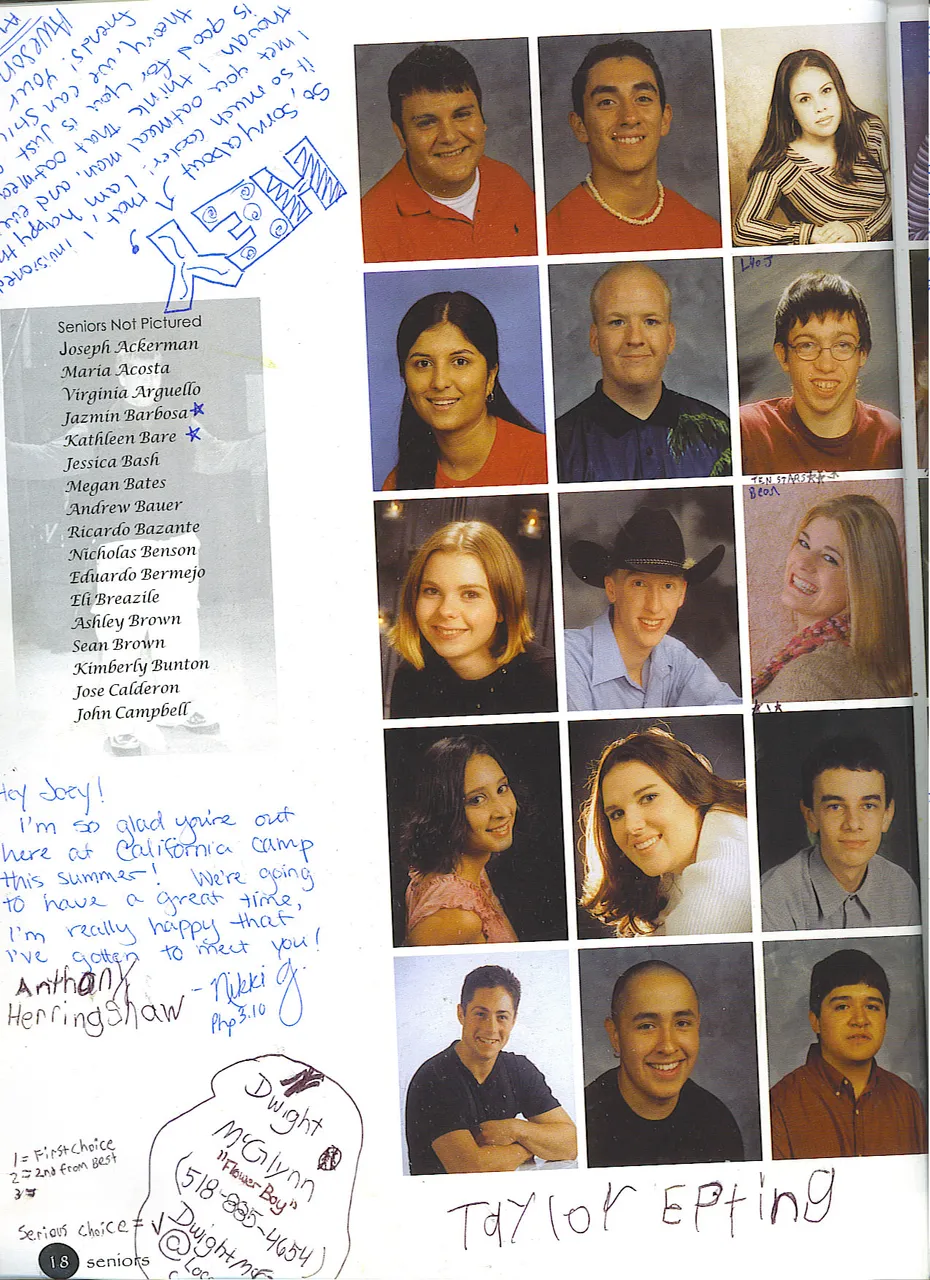 So, sorry about that, I invisioned
it so much cooler! I am happy th
I met you oatmeal man, and eve
though I think that oatmea
is good for you is just
theory, we can sti
friends! Your
Awesom
HEY
Seniors Not Pictured
Joseph Ackerman
Maria Acosta
Virginia Arguello
Jazmin Barbosa
Kathleen Bare
Jessica Bash
Megan Bates
Andrew Bauer
Ricardo Bazante
Nicholas Benson
Eduardo Bermejo
Eli Breazile
Ashley Brown
Sean Brown
Kimberly Bunton
Jose Calderon
John Campbell
TEN STARS
Hey Joey!
I'm so glad you're out
here at California Camp
this summer! We're going
to have a great time,
I'm really happy that
I've gotten to meet you!
- Nikki G.
Php 3:10
Anthony
Herringshaw
Dwight
McGlynn
"Flower Boy"
(518-885-4654)
DwightMc
@
1 = First Choice
2 = 2nd from Best
3 =
Serious choice = √
18 seniors
Taylor Epting